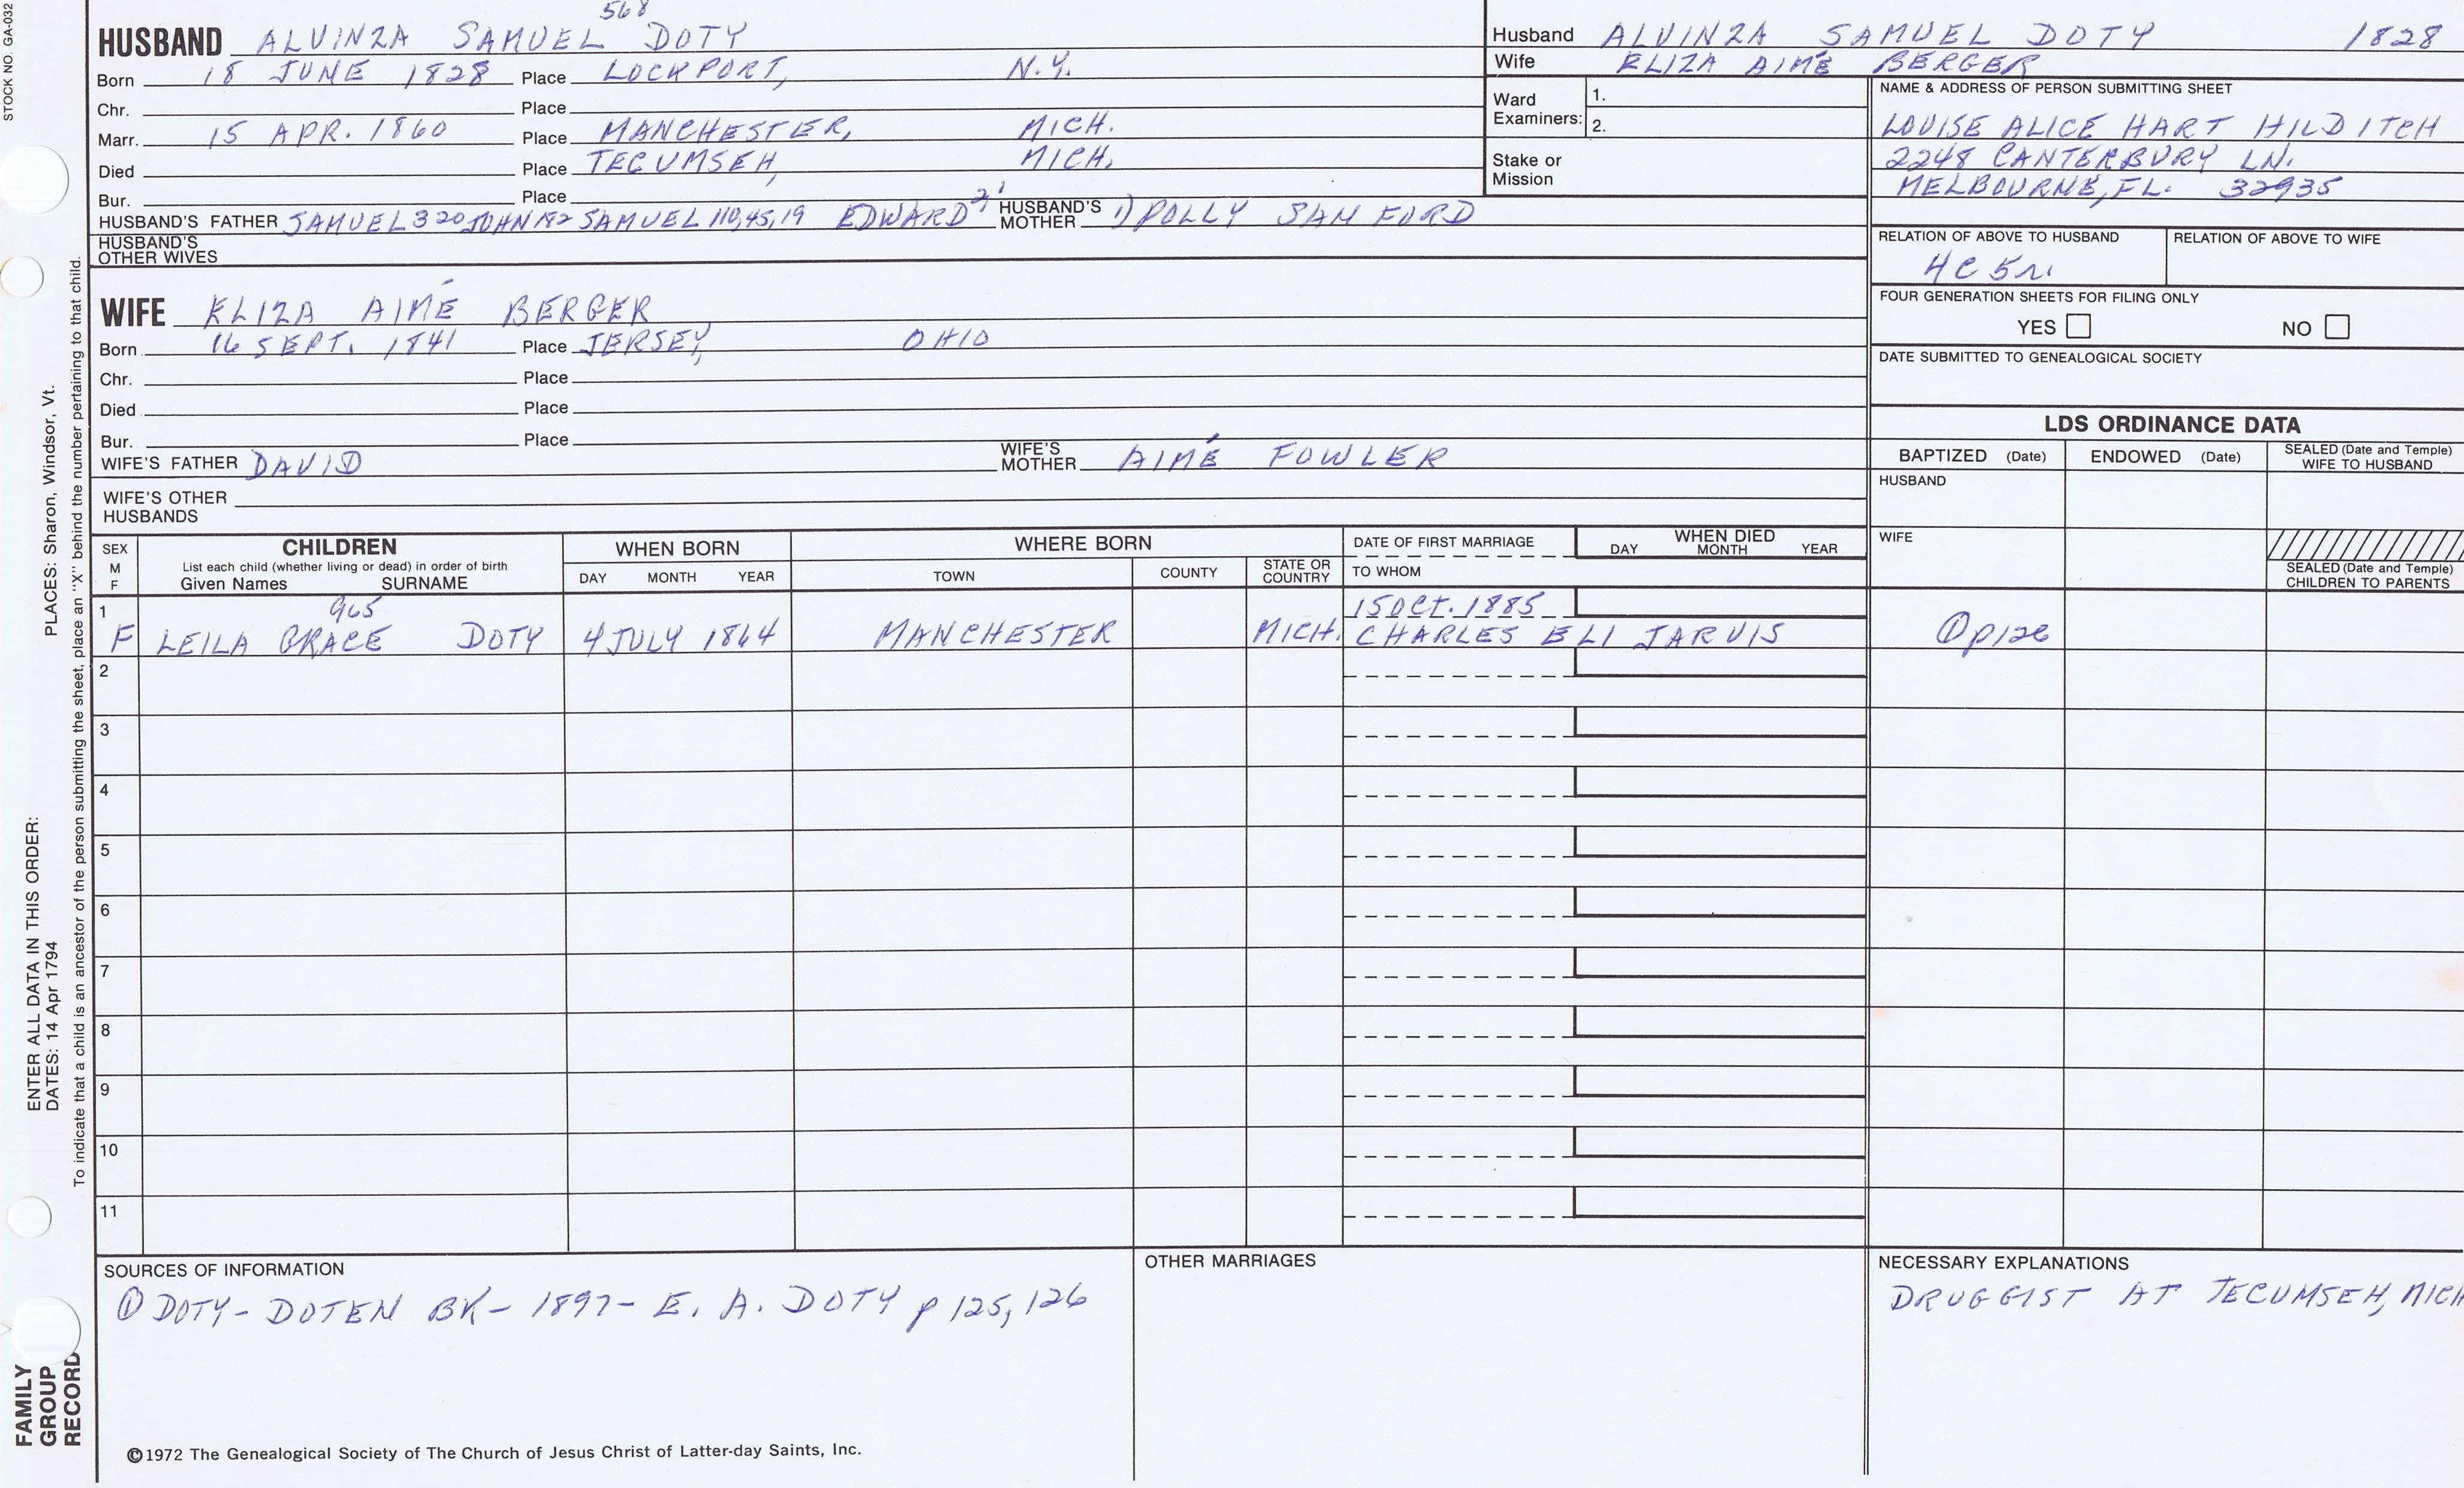 STOCK NO. GA-032
568
HUSBAND ALVINZA SAMUEL DOTY
Born 18 JUNE 1828 Place LOCKPORT, N.Y.
Chr. Place
Marr. 15 APR. 1860 Place MANCHESTER, MICH.
Died Place TECUMSEH, MICH.
Bur. Place
HUSBAND'S FATHER SAMUEL 320 JOHN 192 SAMUEL 110,45,19 EDWARD 2' HUSBAND'S MOTHER 1) POLLY SANFORD
HUSBAND'S OTHER WIVES
WIFE ELIZA AIMÉ BERGER
Born 16 SEPT. 1841 Place JERSEY, OHIO
Chr. Place
Died Place
Bur. Place
WIFE'S FATHER DAVID WIFE'S MOTHER AIMÉ FOWLER
WIFE'S OTHER HUSBANDS
Husband ALVINZA SAMUEL DOTY 1828
Wife ELIZA AIMÉ BERGER
Ward Examiners: 1.
2.
Stake or Mission
NAME & ADDRESS OF PERSON SUBMITTING SHEET
LOUISE ALICE HART HILDITCH
2248 CANTERBURY LN.
MELBOURNE, FL. 32935
RELATION OF ABOVE TO HUSBAND RELATION OF ABOVE TO WIFE
4C 5r.
FOUR GENERATION SHEETS FOR FILING ONLY
YES NO
DATE SUBMITTED TO GENEALOGICAL SOCIETY
LDS ORDINANCE DATA
BAPTIZED (Date) ENDOWED (Date) SEALED (Date and Temple) WIFE TO HUSBAND
HUSBAND
WIFE
SEALED (Date and Temple) CHILDREN TO PARENTS
SEX M F
CHILDREN
List each child (whether living or dead) in order of birth
Given Names SURNAME
WHEN BORN
DAY MONTH YEAR
WHERE BORN
TOWN COUNTY STATE OR COUNTRY
DATE OF FIRST MARRIAGE
TO WHOM
WHEN DIED
DAY MONTH YEAR
1 965 15 Oct. 1885
F LEILA GRACE DOTY 4 JULY 1864 MANCHESTER MICH. CHARLES ELI JARVIS ① p126
2
3
4
5
6
7
8
9
10
11
SOURCES OF INFORMATION
① DOTY - DOTEN BK - 1897 - E. A. DOTY p 125, 126
OTHER MARRIAGES
NECESSARY EXPLANATIONS
DRUGGIST AT TECUMSEH, MICH
©1972 The Genealogical Society of The Church of Jesus Christ of Latter-day Saints, Inc.
FAMILY GROUP RECORD
ENTER ALL DATA IN THIS ORDER:
DATES: 14 Apr 1794 PLACES: Sharon, Windsor, Vt.
To indicate that a child is an ancestor of the person submitting the sheet, place an "X" behind the number pertaining to that child.